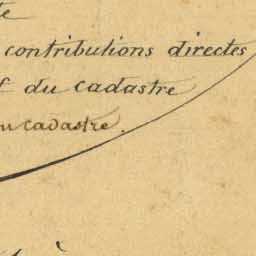 contributions directes
du cadastre
cadastre.